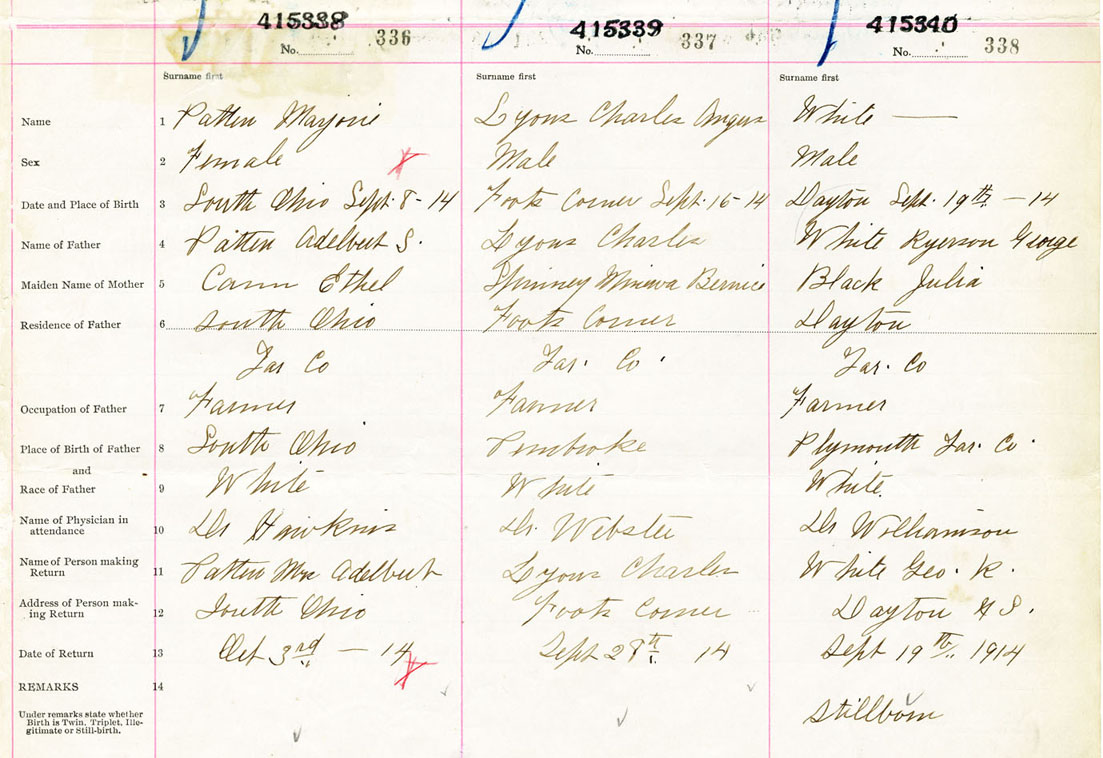 415338 415339 415340
No. 336 No. 337 No. 338
Surname first Surname first Surname first
Name 1 Patten Marjorie Lyons Charles Angus White —
Sex 2 Female Male Male
Date and Place of Birth 3 South Ohio Sept. 8 - 14 Foots Corner Sept. 16 - 14 Dayton Sept. 19th - 14
Name of Father 4 Patten Adelbert S. Lyons Charles White Ryerson George
Maiden Name of Mother 5 Cann Ethel Minerva Bernice Black Julia
Residence of Father 6 South Ohio Foots Corner Dayton
Yar Co Yar. Co. Yar. Co
Occupation of Father 7 Farmer Farmer Farmer
Place of Birth of Father 8 South Ohio Pembroke Plymouth Yar. Co.
and
Race of Father 9 White White White.
Name of Physician in
attendance 10 Dr Hawkins Dr. Webster Dr Williamson
Name of Person making
Return 11 Patten Mrs Adelbert Lyons Charles White Geo. R.
Address of Person mak-
ing Return 12 South Ohio Foots Corner Dayton N S.
Date of Return 13 Oct 3rd — 14 Sept 28th 14 Sept 19th. 1914
REMARKS 14
Under remarks state whether
Birth is Twin, Triplet, Ille-
gitimate or Still-birth.
Stillborn